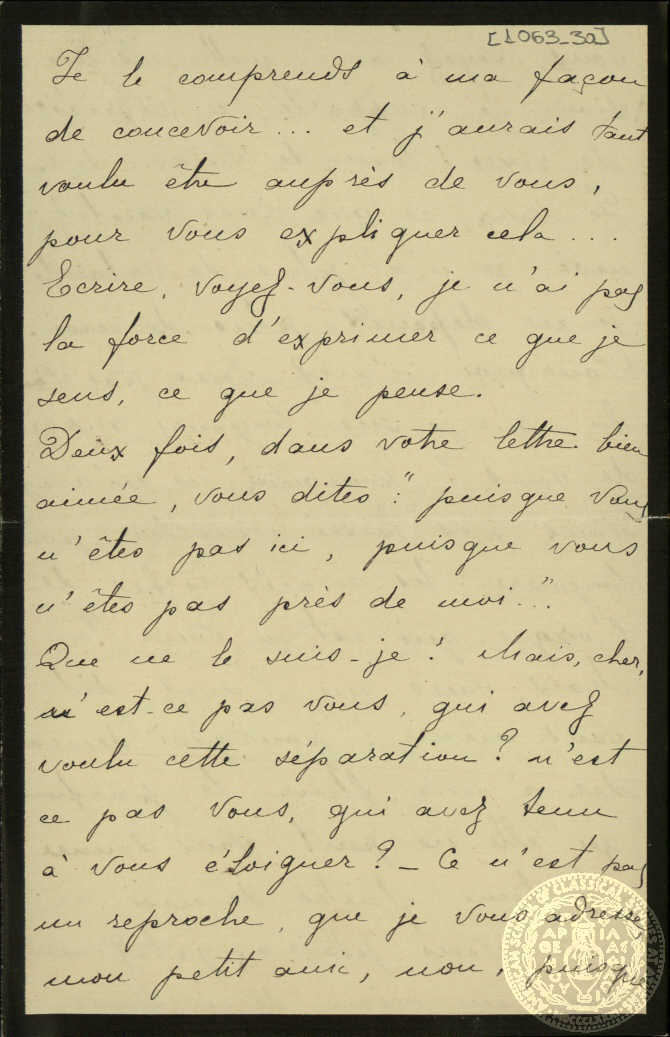 [1063_30]
Je le comprends à ma façon
de concevoir... et j'aurais tant
voulu être auprès de vous,
pour vous expliquer cela...
Ecrire, voyez-vous, je n'ai pas
la force d'exprimer ce que je
sens, ce que je pense.
Deux fois, dans votre lettre bien
aimée, vous dites: "puisque vous
n'êtes pas ici, puisque vous
n'êtes pas près de moi..."
Que ne le suis-je! Mais, cher,
n'est-ce pas vous, qui avez
voulu cette séparation? n'est
ce pas vous, qui avez tenu
à vous éloigner? _ Ce n'est pas
un reproche, que je vous adresse,
mon petit ami, non, puisque